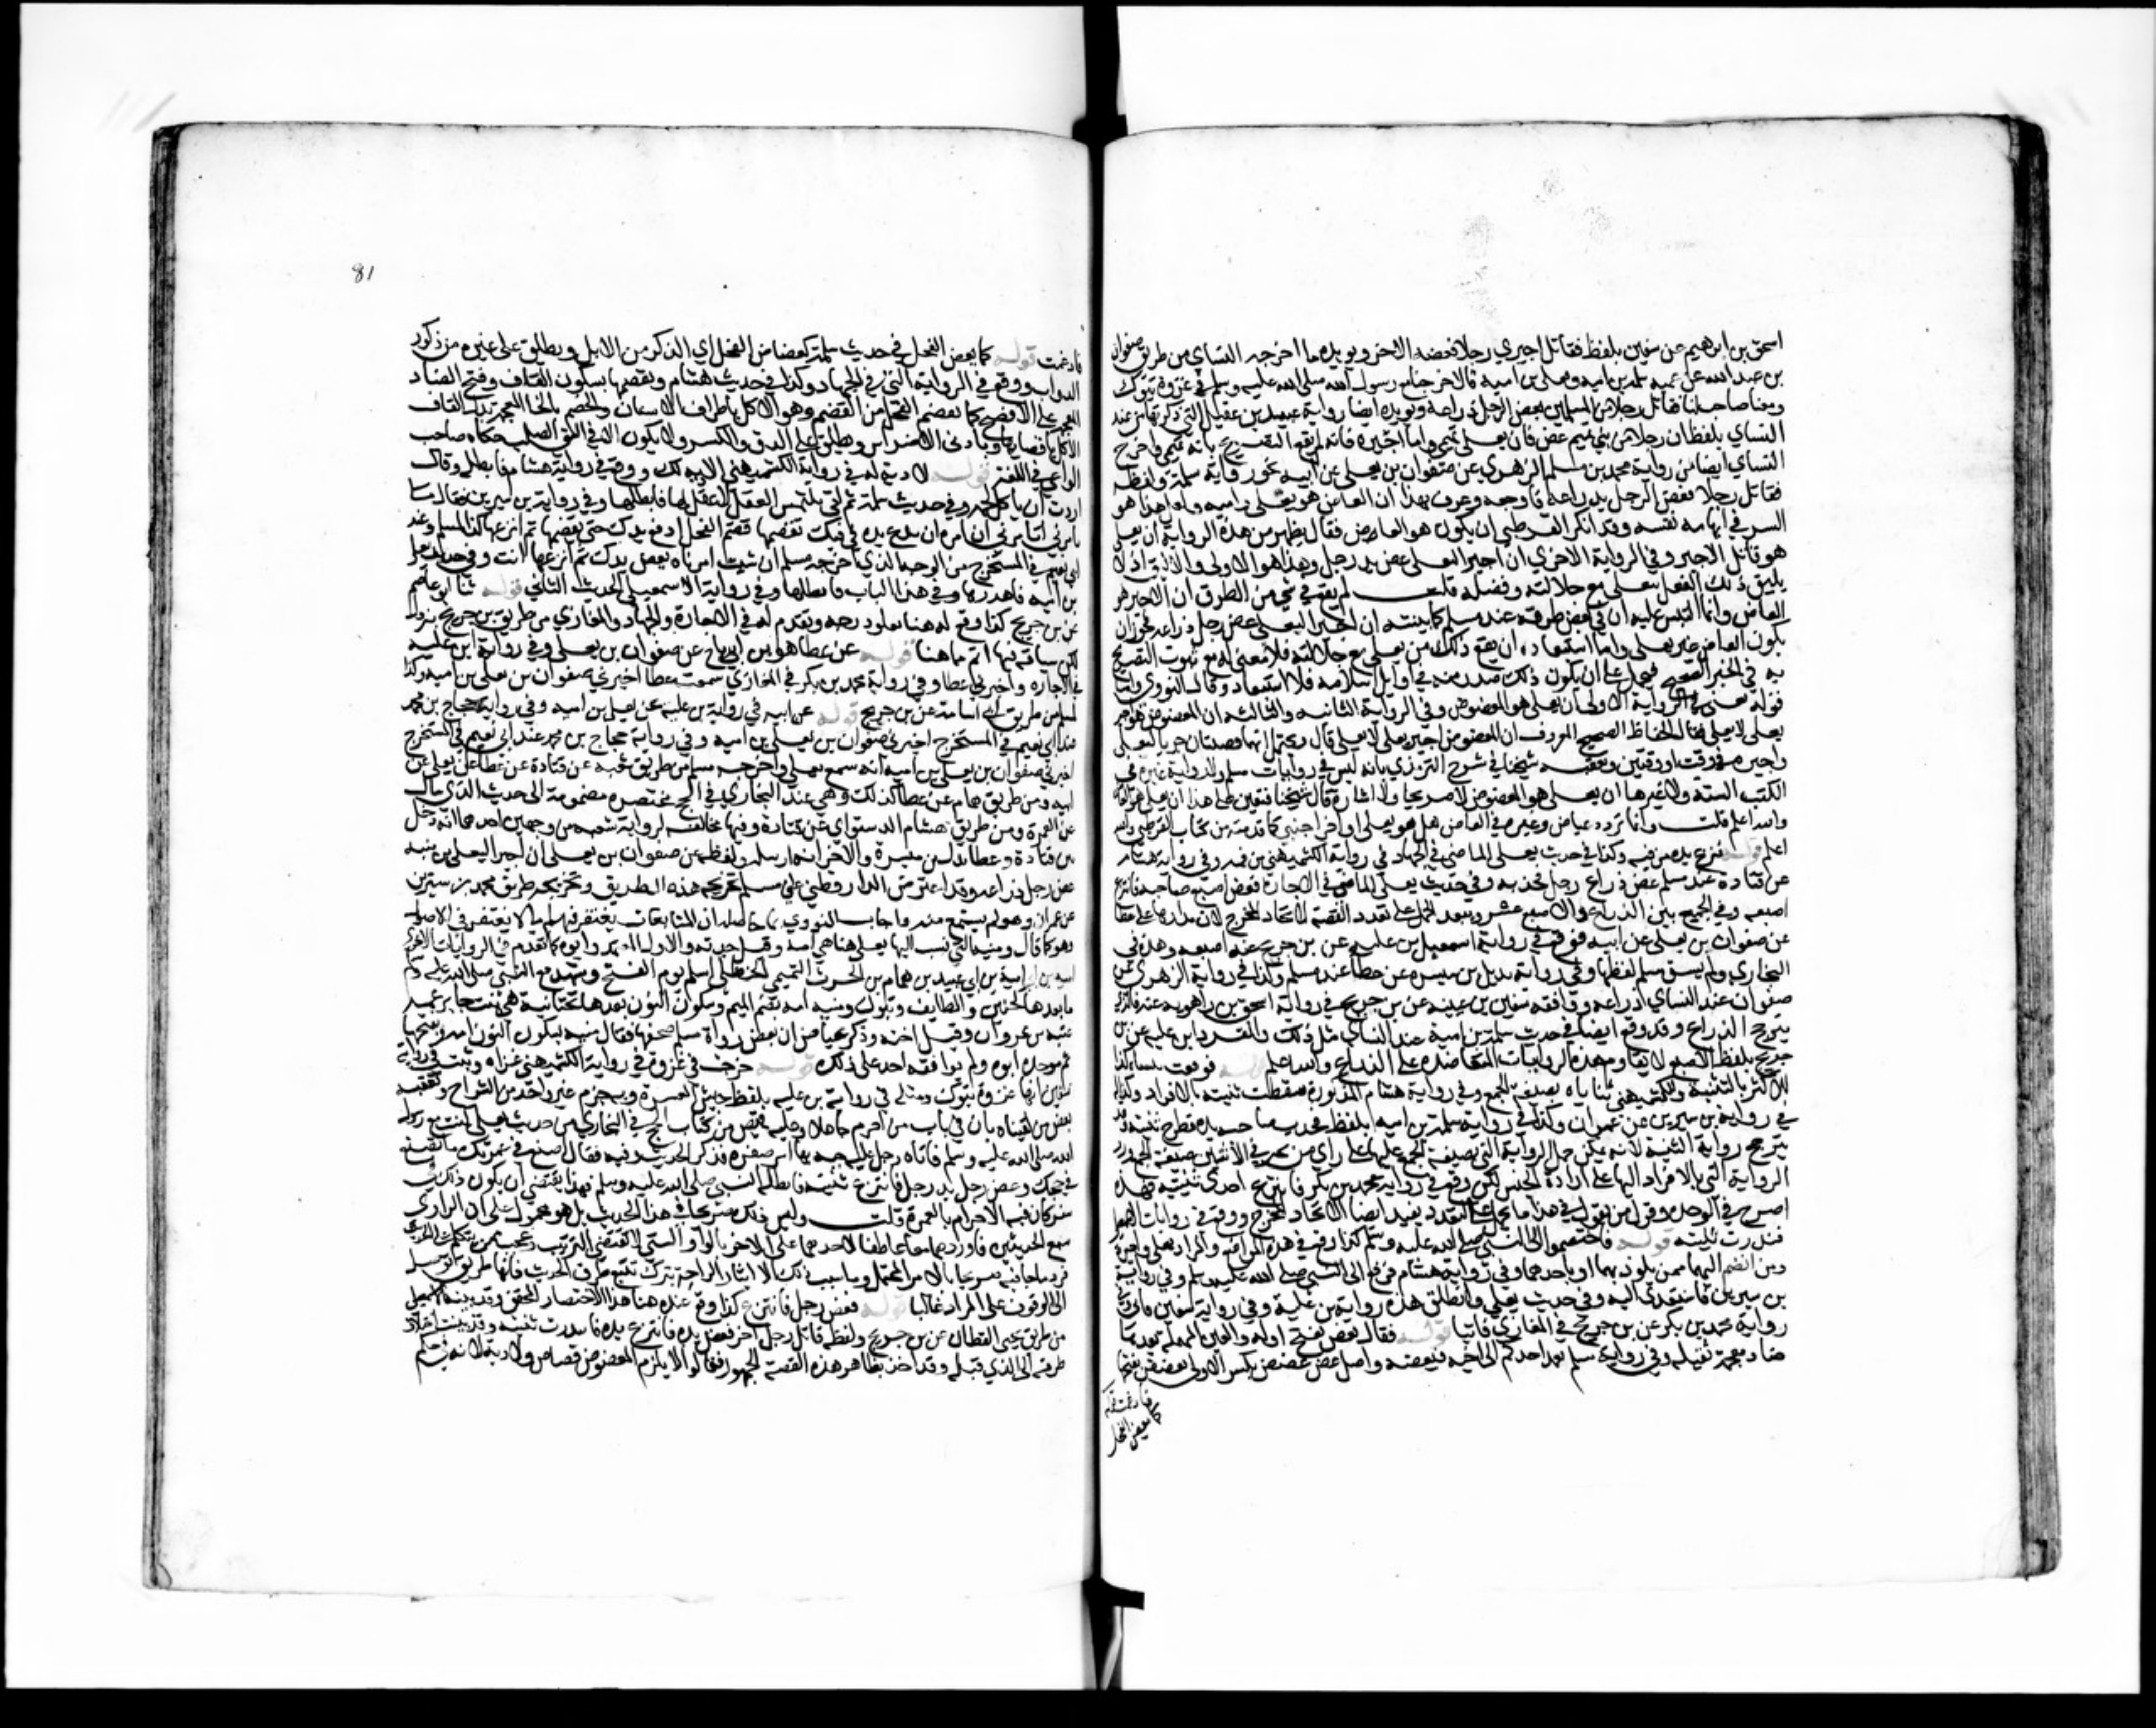 اسحق بن ابرهيم عن سفين بلفظ فقاتل اجيري رجلا فعضه الاخر ويويده ما اخرجه النساي من طريق صفوان
بن عبد الله عن عميه سلمة بن امية ويعلى بن امية قالا خرجنا مع رسول الله صلى الله عليه وسلم في غزوة تبوك
ومعنا صاحب لنا فقاتل رجلا من المسلمين فعض الرجل ذراعه ويويده ايضا رواية عبيد بن عقيل التي ذكرتها من عند
النساي بلفظ ان رجلا من بني تميم عض فان يعلى تميمي واما اجيره فانه لم يقع التصريح بانه تميمي واخرج
النساي ايضا من رواية محمد بن مسلم الزهري عن صفوان بن يعلى عن ابيه نحو رواية سلمة ولفظه
فقاتل رجلا فعض الرجل بذراعه فاوجعه وعرف بهذا ان العاض هو يعلى بن اميه ولعل هذا هو
السر في ابهامه نفسه وقد انكر القرطبي ان يكون هو العاض فقال يظهر من هذه الرواية ان يعلى
هو قاتل الاجير وفي الرواية الاخرى ان اجيرا ليعلى عض يد رجل وهذا هو الاولى والاليق اذ لا
يليق ذلك الفعل بيعلى مع جلالته وفضله قلت لم يقع في شي من الطرق ان الاجير هو
العاض وانما التبس عليه ان في بعض طرقه عند مسلم كما بينته ان اجيرا ليعلى عض رجل ذراعه فجوز ان
يكون العاض غير يعلى واما استبعاده ان يقع ذلك من يعلى مع جلالته فلا معنى له مع ثبوت التصريح
به في الخبر الصحيح فيحمل على ان يكون ذلك صدر منه في اوايل اسلامه فلا استبعاد وقال النووي واما
قوله يعني في الرواية الاولى ان يعلى هو المعضوض وفي الرواية الثانيه والثالثه ان المعضوض هو اجير
يعلى لا يعلى فقال الحفاظ الصحيح المعروف ان المعضوض اجير يعلى لا يعلى قال ويحتمل انهما قصتان جرتا ليعلى
واجيره في وقت او وقتين وتعقبه شيخنا في شرح الترمذي بانه ليس في روايات مسلم ولا رواية غيره في
الكتب الستة ولا غيرها ان يعلى هو المعضوض لا صريحا ولا اشارة قال شيخنا فتعين على هذا ان يعلى هو العاض
والله اعلم قلت وانما تردد عياض وغيره في العاض هل هو يعلى او اخر اجنبي كما قدمته من كتاب القرطبي والله
اعلم قوله فنزع يده من فيه وكذا في حديث يعلى الماضي في الجهاد في رواية الكشميهني من فمه وفي رواية هشام
عن قتادة عند مسلم عض ذراع رجل فجذبه وفي حديث يعلى الماضي في الاجارة فعض اصبع صاحبه فانتزع
اصبعه وفي الجمع بين الذراع والاصبع عسر ويبعد الحمل على تعدد القصة لاتحاد المخرج لان مدارها على عطا
عن صفوان بن يعلى عن ابيه فوقع في رواية اسمعيل بن علية عن بن جريج عنه اصبعه وهذه في
البخاري ولم يسق مسلم لفظها وفي رواية بديل بن ميسره عن عطا عند مسلم وكذا في رواية الزهري عن
صفوان عند النساي ذراعه ووافقه سفين بن عيينه عن بن جريج في رواية اسحق بن راهويه عنه فالذي
يترجح الذراع وقد وقع ايضا في حديث سلمة بن امية عند النساي مثل ذلك وانفرد ابن علية عن بن
جريج بلفظ الاصبع لا يقاوم هذه الروايات المتعاضده على الذراع والله اعلم قوله فوقعت ثنيتاه كذا
للاكثر بالتثنية وللكشميهني ثناياه بصيغة الجمع وفي رواية هشام المذكورة فسقطت ثنيته بالافراد وكذا له
في رواية بن سيرين عن عمران وكذا في رواية سلمة بن اميه بلفظ فجذب صاحبه يده فطرح ثنيته وقد
يترجح رواية التثنية لانه يمكن حمل الرواية التي بصيغة الجمع عليها على راي من يجيز في الاثنين صيغة الجمع ورد
الرواية التي بالافراد اليها على ارادة الجنس لكن وقع في رواية محمد بن بكر فانتزع احدى ثنيتيه فهذه
اصرح في الوحده وقول من يقول في هذا ما يحمل على التعدد بعيد ايضا لاتحاد المخرج ووقع في روايات الاسمعيلي
فندرت ثنيته قوله فاختصموا الى النبي صلى الله عليه وسلم كذا وقع في هذه المواضع والمراد يعلى واجيره
ومن انضم اليهما ممن يلوذ بهما او باحدهما وفي رواية هشام فرفع الى النبي صلى الله عليه وسلم وفي رواية
بن سيرين فاستعدى اليه وفي حديث يعلى فانطلق هذه رواية بن علية وفي رواية سفين فاتى وفي
رواية محمد بن بكر عن بن جريج في المغازي فاتيا قوله فقال يعض بفتح اوله والعين المهمله بعدها
ضاد معجمة ثقيله وفي رواية مسلم يعمد احدكم الى اخيه فيعضه واصل عض عضض بكسر الاولى يعضض بفتحها
فادغمت قوله
كما يعض الفحل
81
فادغمت قوله كما يعض الفحل في حديث سلمة كعضاض الفحل اي الذكر من الابل ويطلق على غيره من ذكور
الدواب ووقع في الرواية التي في الجهاد وكذا في حديث هشام ويقضمها بسكون القاف وفتح الضاد
المعجمه على الافصح كما يقضم الفحل من القضم وهو الاكل باطراف الاسنان والخضم بالخا المعجمة بدل القاف
الاكل باقصاها وبادنى الاضراس ويطلق على الدق والكسر ولا يكون الا في الشي الصلب حكاه صاحب
الواعي في اللغة قوله لا دية له في رواية الكشميهني لا دية لك ووقع في رواية هشام فابطله وقال
اردت ان ياكل لحمه وفي حديث سلمة ثم تاتي تلتمس العقل لا عقل لها فابطلها وفي رواية بن سيرين فقال ما
تامرني اتامرني ان امره ان يدع يده في فيك تقضمها قضم الفحل ادفع يدك حتى يقضمها ثم انزعها كذا لمسلم وعند
ابي نعيم في المستخرج من الوجه الذي اخرجه مسلم ان شيت امرناه فعض يدك ثم انزعها انت وفي حديث يعلى
بن امية فاهدرها وفي هذا الباب فابطلها وفي رواية الاسمعيلي الحديث الثاني قوله ثنا ابو عاصم
عن بن جريج كذا وقع له هنا بعلو درجه وتقدم له في الاجارة والجهاد والمغازي من طريق بن جريج بنزول
لكن سياقه فيها اتم مما هنا قوله عن عطا هو بن ابي رباح عن صفوان بن يعلى وفي رواية ابن علية
في الاجاره اخبرني عطا وفي رواية محمد بن بكر في المغازي سمعت عطا اخبرني صفوان بن يعلى بن امية وكذا
لمسلم من طريق ابي اسامة عن بن جريج قوله عن ابيه في رواية بن علية عن يعلى بن اميه وفي رواية حجاج بن محمد
عند ابي نعيم في المستخرج اخبرني صفوان بن يعلى بن امية
اخبرني صفوان بن يعلى بن امية انه سمع يعلى واخرجه مسلم من طريق شعبه عن قتادة عن عطا عن بن يعلى عن
ابيه ومن طريق همام عن عطا كذلك وهي عند البخاري في الحج مختصره مضمومة الى حديث الذي سال
عن العمرة ومن طريق هشام الدستواي عن قتادة وفيها مخالفة لرواية شعبه من وجهين احدهما انه دخل
بين قتادة وعطا بديل بن ميسرة والاخر انه ارسله ولفظه عن صفوان بن يعلى ان اجيرا ليعلى بن منيه
عض رجل ذراعه وقد اعترض الدارقطني على مسلم تخريجه هذه الطريق وتخريجه طريق محمد بن سيرين
عن عمران وهو لم يسمع منه واجاب النووي بما حاصله ان المتابعات يغتفر فيها ما لا يغتفر في الاصول
وهو كما قال ومنية التي نسب اليها يعلى هنا هي امه وقيل جدته والاول المعتمد وابوه كما تقدم في الروايات الاخرى
امية بن ابي عبيد بن همام بن الحرث التميمي الحنظلي اسلم يوم الفتح وشهد مع النبي صلى الله عليه وسلم
ما بعدها كحنين والطايف وتبوك ومنيه امه بضم الميم وسكون النون بعدها تحتانية هي بنت جابر عمة
عتبه بن غزوان وقيل اخته وذكر عياض ان بعض رواة مسلم صحفها فقال منبه
ولم يوافقه احد على ذلك قوله خرجت في غزوة في رواية الكشميهني غزاه وثبت في رواية
سفين انها غزوة تبوك ومثله في رواية بن علية بلفظ جيش العسرة وبه جزم غير واحد من الشراح وتعقبه
بعض من لقيناه بان في باب من احرم جاهلا وعليه قميص من كتاب الحج في البخاري من حديث يعلى كنت مع رسول
الله صلى الله عليه وسلم فاتاه رجل عليه جبه بها اثر صفره فذكر الحديث وفيه فقال اصنع في عمرتك ما تصنع
في حجك وعض رجل يد رجل فانتزع ثنيته فابطله النبي صلى الله عليه وسلم فهذا يقتضي ان يكون ذلك في
سفر كان فيه الاحرام بالعمرة قلت وليس ذلك صريحا في هذا الحديث بل هو محمول على ان الراوي
سمع الحديثين فاوردهما معا عاطفا لاحدهما على الاخر بالواو التي لا تقتضي الترتيب وعجيب ممن يتكلم على الحديث
فيرد ما جا فيه صريحا بالامر المحتمل وما سبب ذلك الا ايثار الراحة بترك تتبع طرق الحديث فانها طريق توصل
الى الوقوف على المراد غالبا قوله فعض رجل فانتزع كذا وقع عنده هنا هذا الاختصار المجحف وقد بينه الاسمعيلي
من طريق يحيى القطان عن بن جريج ولفظه قاتل رجل اخر فعض يده فانتزع يده فاندرت ثنيته وقد بينت اختلاف
طرقه في الذي قبله وقد اخذ بظاهر هذه القصة الجمهور فقالوا لا يلزم المعضوض قصاص ولا دية لانه في حكم